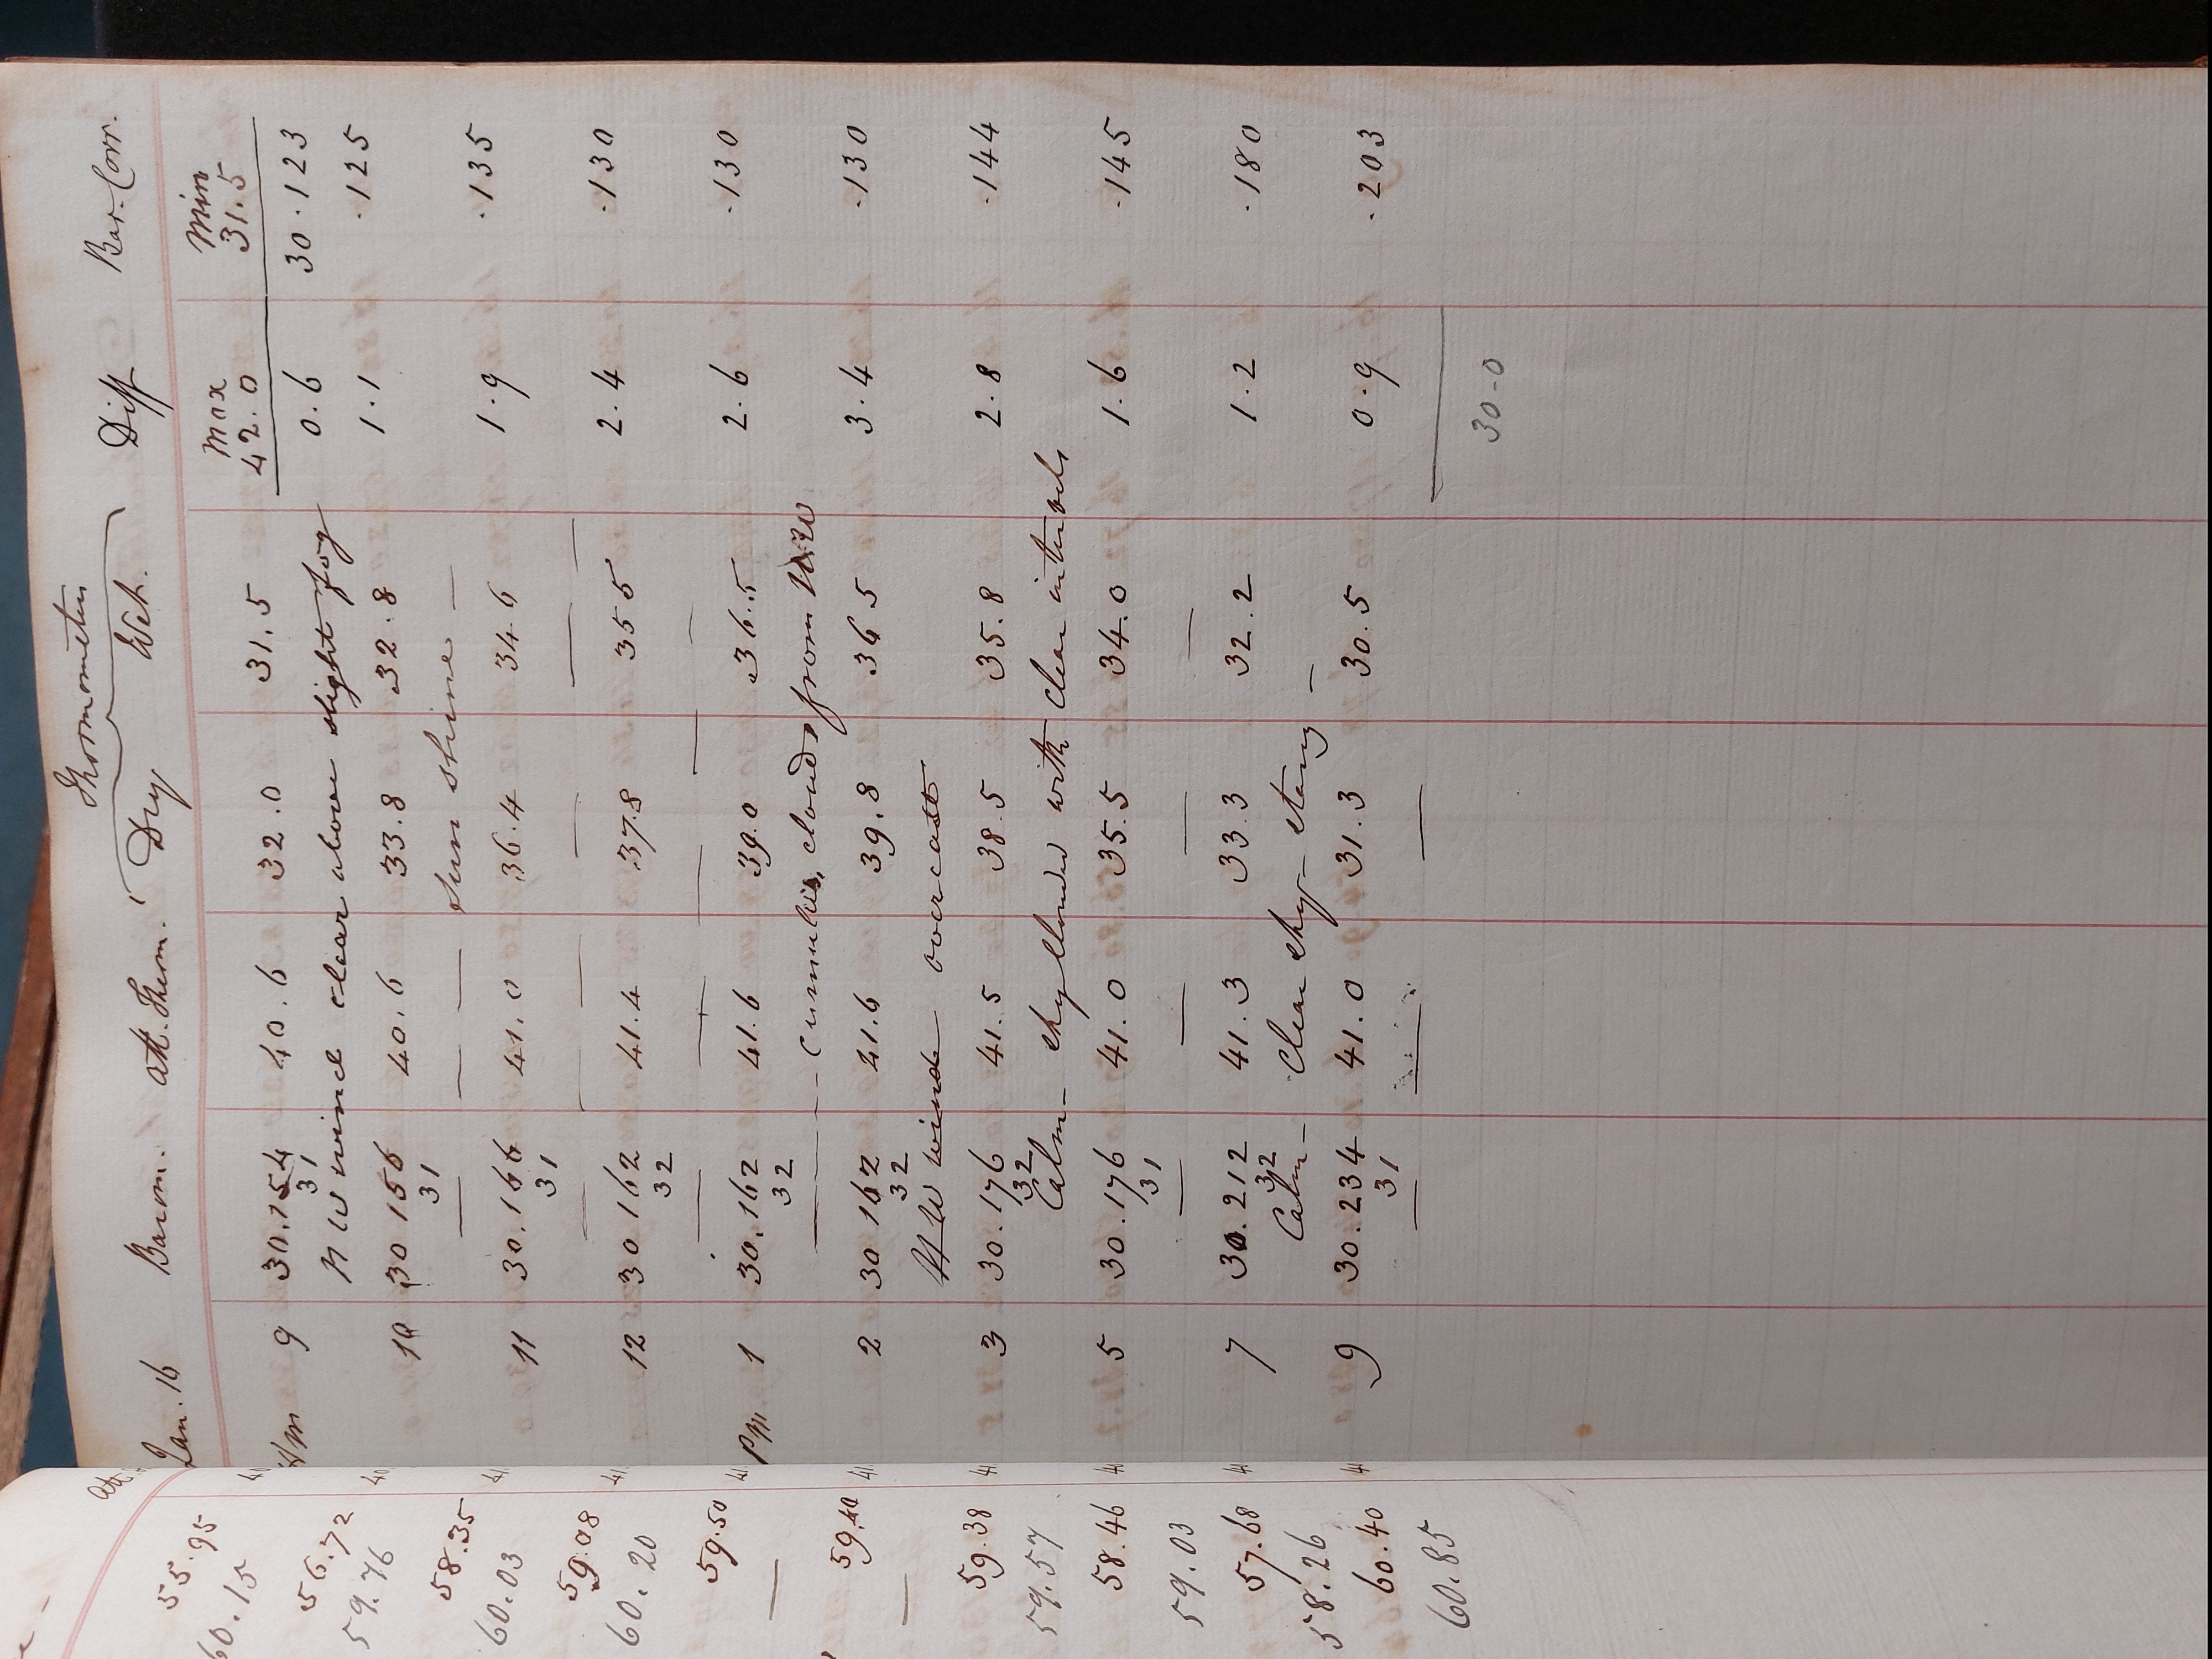 att.
55.95
60.15
56.72
59.76
58.35
60.03
59.08
60.20
59.50
59.40
59.38
59.57
58.46
59.03
57.68
58.26
60.40
60.85
Thermometers
Jan. 16 Barom. att. Therm. Dry Wet. Diff Bar. Corr.
Max Min
42.0 31.5
Am 9 30.154 40.6 32.0 31.5 0.6 30.123
31
N W wind clear above slight fog
10 30 156 40.6 33.8 32.8 1.1 .125
31
— — — sun shine —
11 30.166 41.0 36.4 34 6 1.9 .135
31
— — — — — —
12 30 162 41.4 37.8 35 5 2.4 .130
32
— — — — —
Pm 1 30.162 41.6 39.0 36.5 2.6 .130
32
— — — cumulus, clouds from N.W
2 30 162 41.6 39.8 36 5 3.4 .130
32
N W wind overcast
3 30.176 41.5 38.5 35.8 2.8 .144
32
Calm — sky cloudd with clear intervals
5 30.176 41.0 35.5 34.0 1.6 .145
31
— — — —
7 30.212 41.3 33.3 32.2 1.2 .180
32
Calm — clear sky — starry —
9 30.234 41.0 31.3 30.5 0.9 .203
31
— — —
30-0